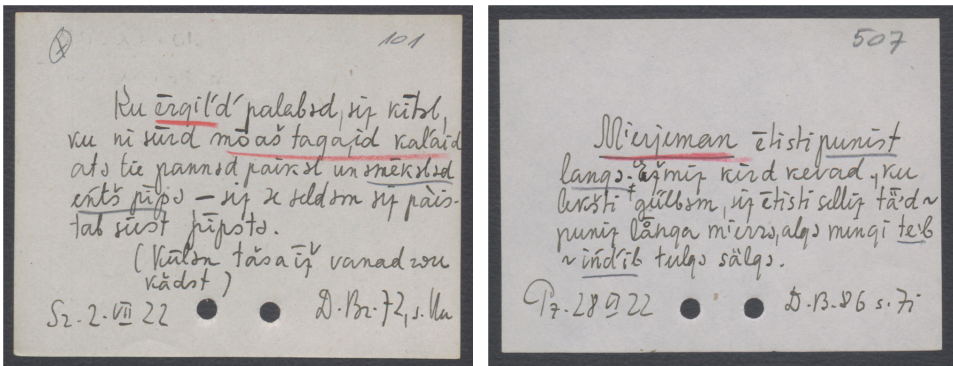 101
Ku ērgil'd' palabəd, siz kītəb,
ku ni sūrd mōaš tagajid kalāid
ats tie pannəd päikəl un smēkəbəd
entš pīpə – siz se seldəm siz päis-
tab sīest pīpstə.
(Kūlən tāsa īž vanad
kādst)
Sz. 2. VII 22 D. Bz. 72, s.
507
Mierjeman ētisti punist
langə. miz kūrd kevad, ku
lekšti gūlbəm, siz ētisti səlliz tǟd ~
puniz långa mierrə, algə mingi te'b
~ iñd'ib tulgə sälgə.
Pz. 28 VI 22 D. B. 86 s. 7i